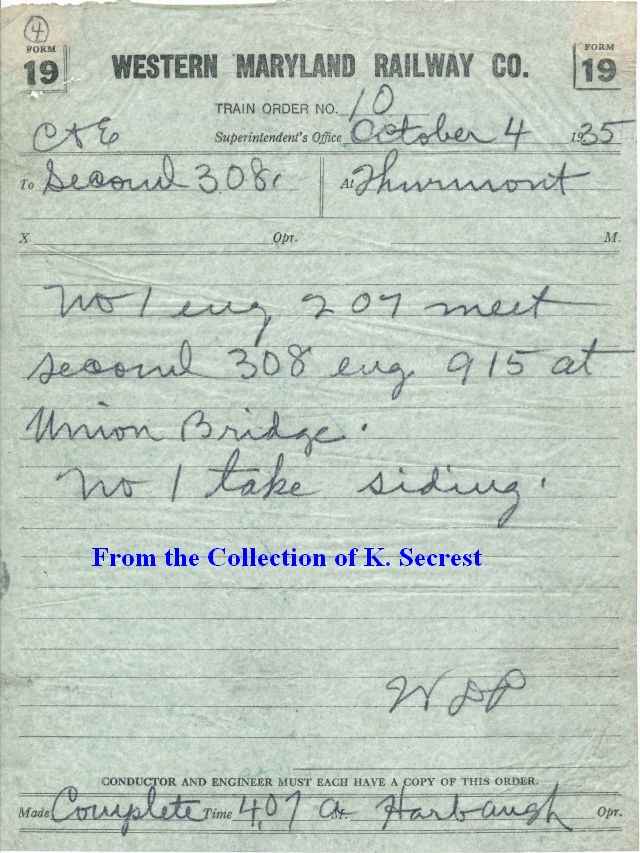 4
FORM 19 WESTERN MARYLAND RAILWAY CO. FORM 19
TRAIN ORDER NO. 10
C & E Superintendent's Office October 4 1935
To Second 308. At Thurmont
X Opr. M.
No 1 eng 207 meet
second 308 eng 915 at
Union Bridge.
No 1 take siding.
From the Collection of K. Secrest
W D P
CONDUCTOR AND ENGINEER MUST EACH HAVE A COPY OF THIS ORDER.
Made Complete Time 4,07 a M. Harbaugh Opr.